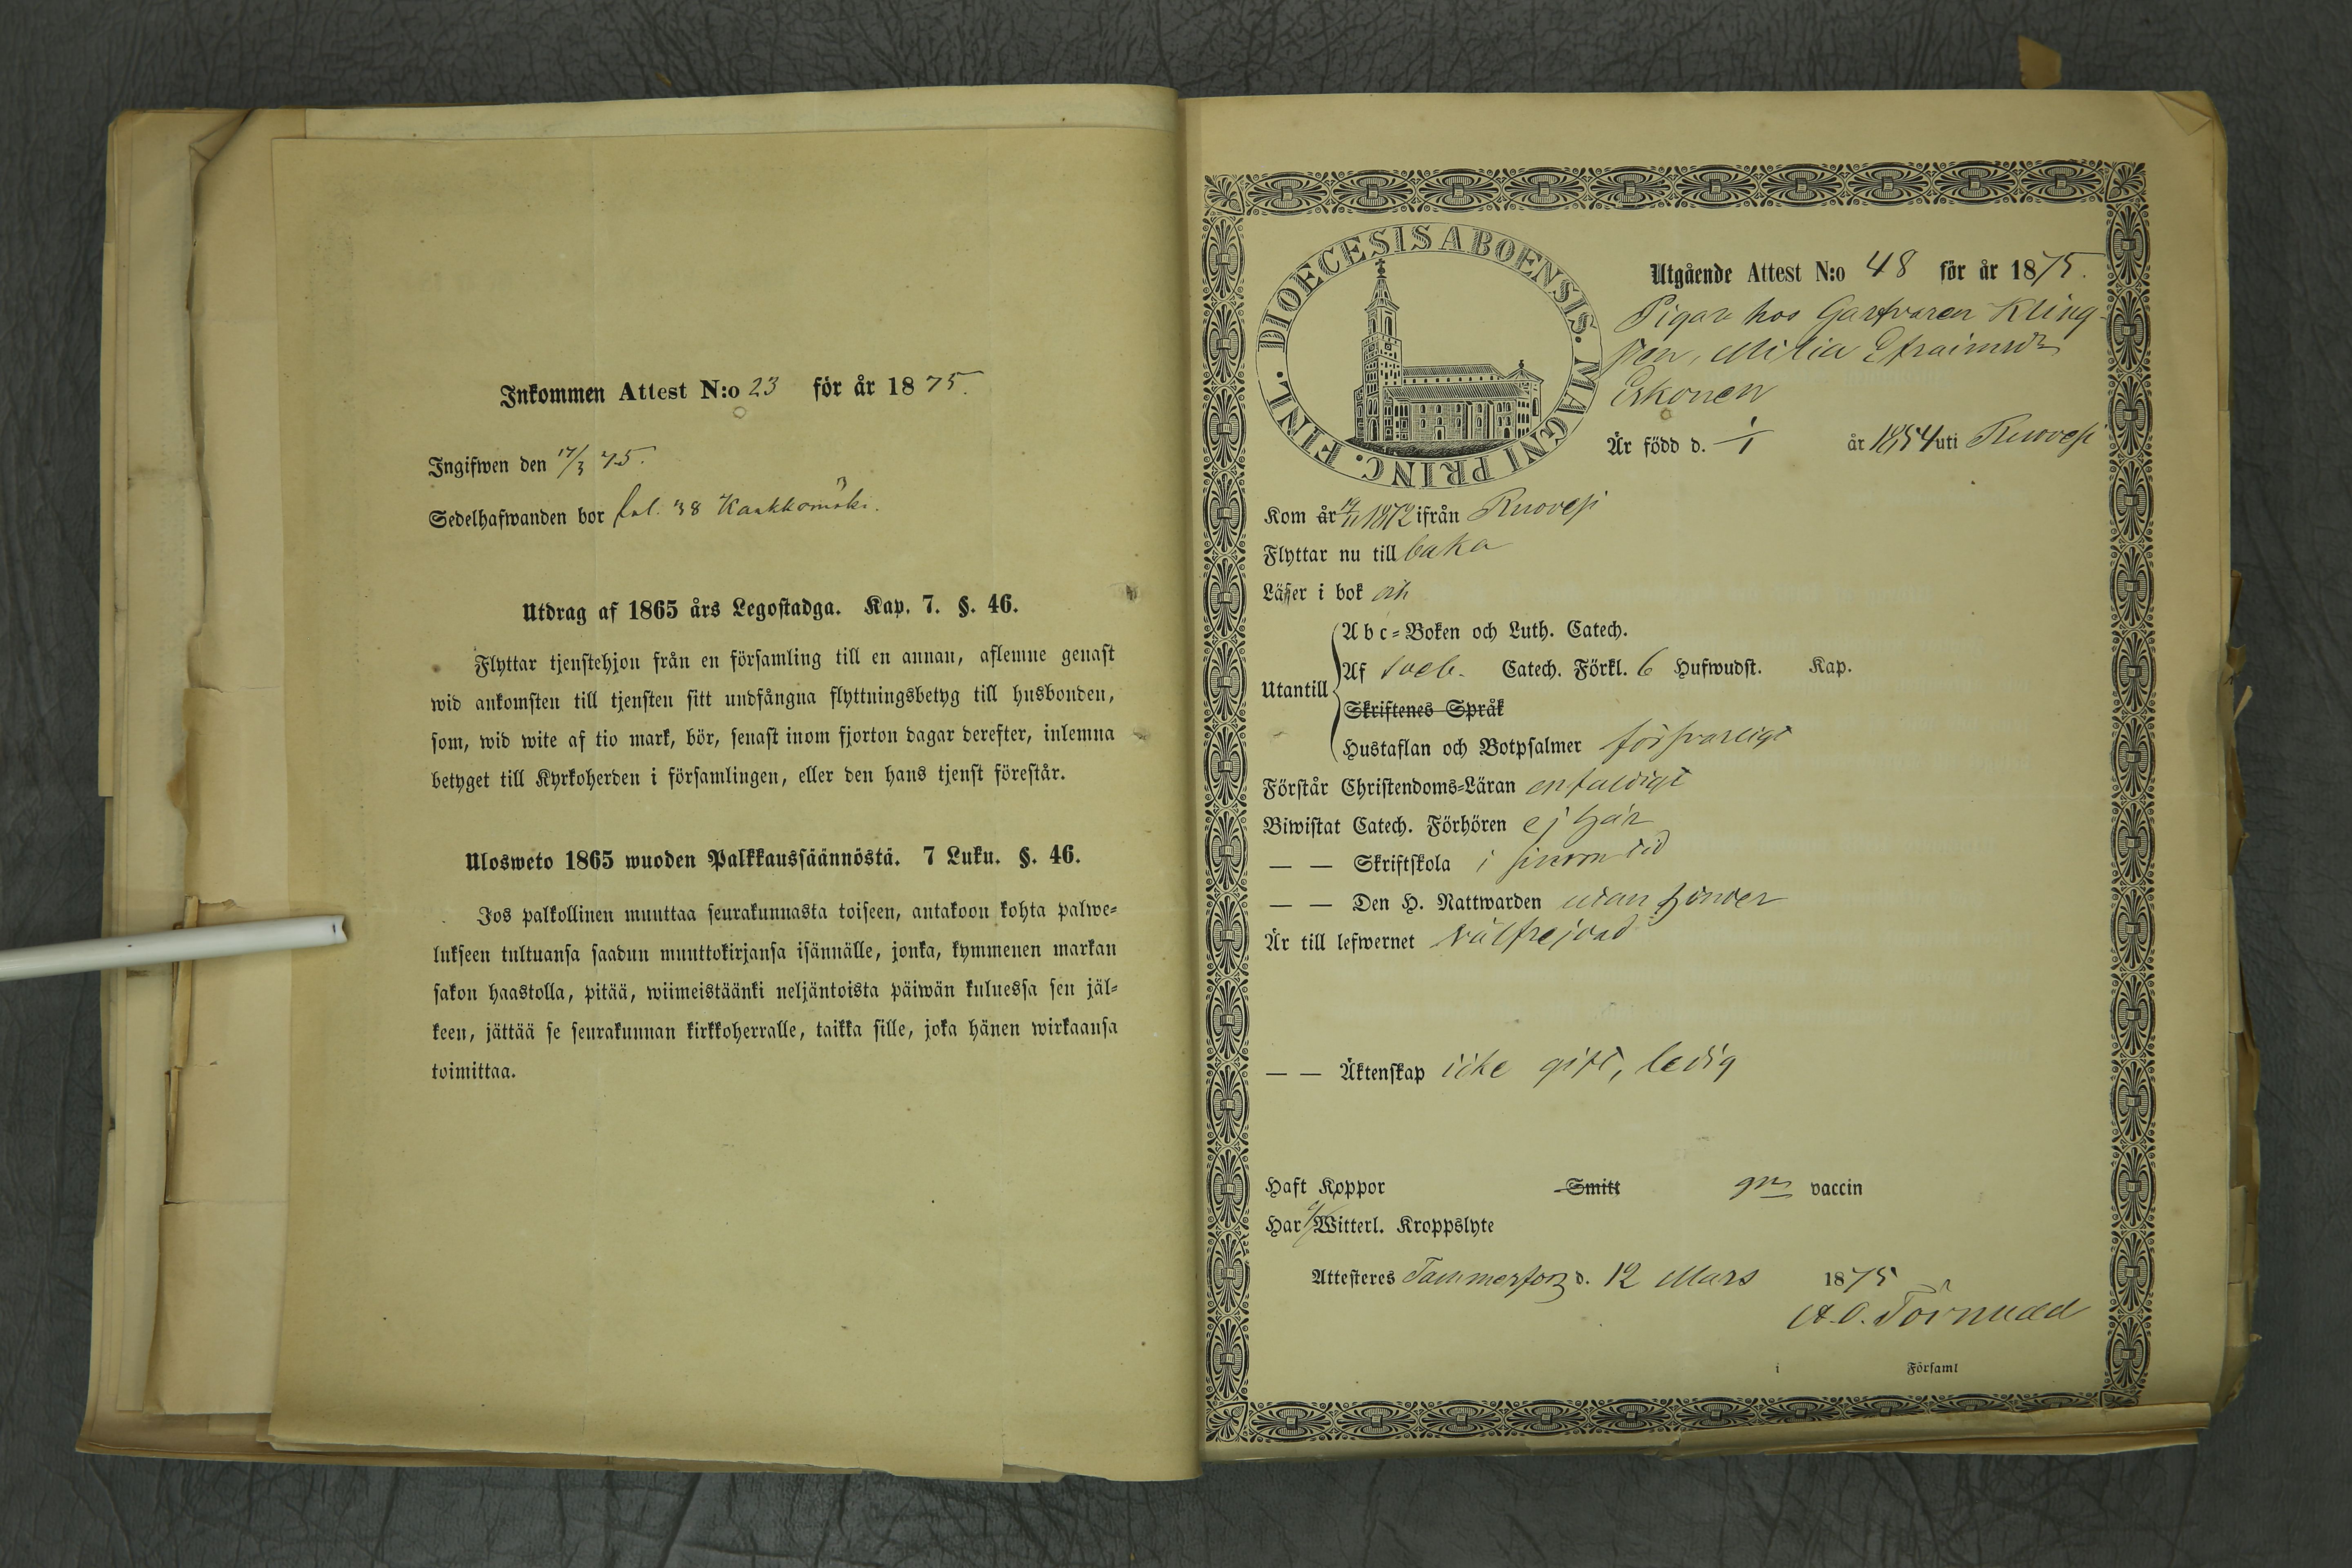 Inkommen Attest N:o 23 för år 1875.
Ingifwen den 17/3 75.
Sedelhafwanden bor fol. 38
Utdrag af 1865 års Legostadga. Kap. 7. §. 46.
Flyttar tjenstehjon från en församling till en annan, aflemne genast
wid ankomsten till tjensten sitt undfångna flyttningsbetyg till husbonden,
som, wid wite af tio mark, bör, senast inom fjorton dagar derefter, inlemna
betyget till Kyrkoherden i församlingen, eller den hans tjenst förestår.
Ulosweto 1865 wuoden Palkkaussäännöstä. 7 Luku. §. 46.
Jos palkollinen muuttaa seurakunnasta toiseen, antakoon kohta palwe-
lukseen tultuansa saadun muuttokirjansa isännälle, jonka, kymmenen markan
sakon haastolla, pitää, wiimeistäänki neljäntoista päiwän kuluessa sen jäl-
keen, jättää se seurakunnan kirkkoherralle, taikka sille, joka hänen wirkaansa
toimittaa.
DIOECESIS ABOENSIS. MAGNI PRINC. FINL.
Utgående Attest N:o 48 för år 1875.
Pigan hos Garfvaren Kling-
Eskonen
Är född d. 1/1 år 1854 uti Ruovesi
Kom år 1872 ifrån Ruovesi
Flyttar nu till baka
Läser i bok
Abc-Boken och Luth. Catech.
Utantill
Af Sveb. Catech. Förkl. 6 Hufwudst. Kap.
Skriftenes Språk
Hustaflan och Botpsalmer försvarligt
Förstår Christendoms-Läran enfaldigt
Biwistat Catech. Förhören ej här
— — Skriftskola i sinom tid
— — Den H. Nattwarden utan hinder
Är till lefwernet välfrejdad
— — Äktenskap icke gift, ledig
Haft Koppor Smitt gm vaccin
Har ej Witterl. Kroppslyte
Attesteres Tammerfors d. 12 Mars 1875
A. O. Törnudd
i Församl